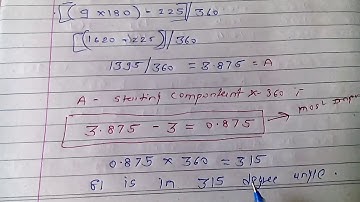 [(9 x 180) - 225]/360
[(1620 - 225)]/360
1395/360 = 3.875 = A
A - starting component x 360 =
3.875 - 3 = 0.875 → most
0.875 x 360 = 315
is in 315 degree angle.